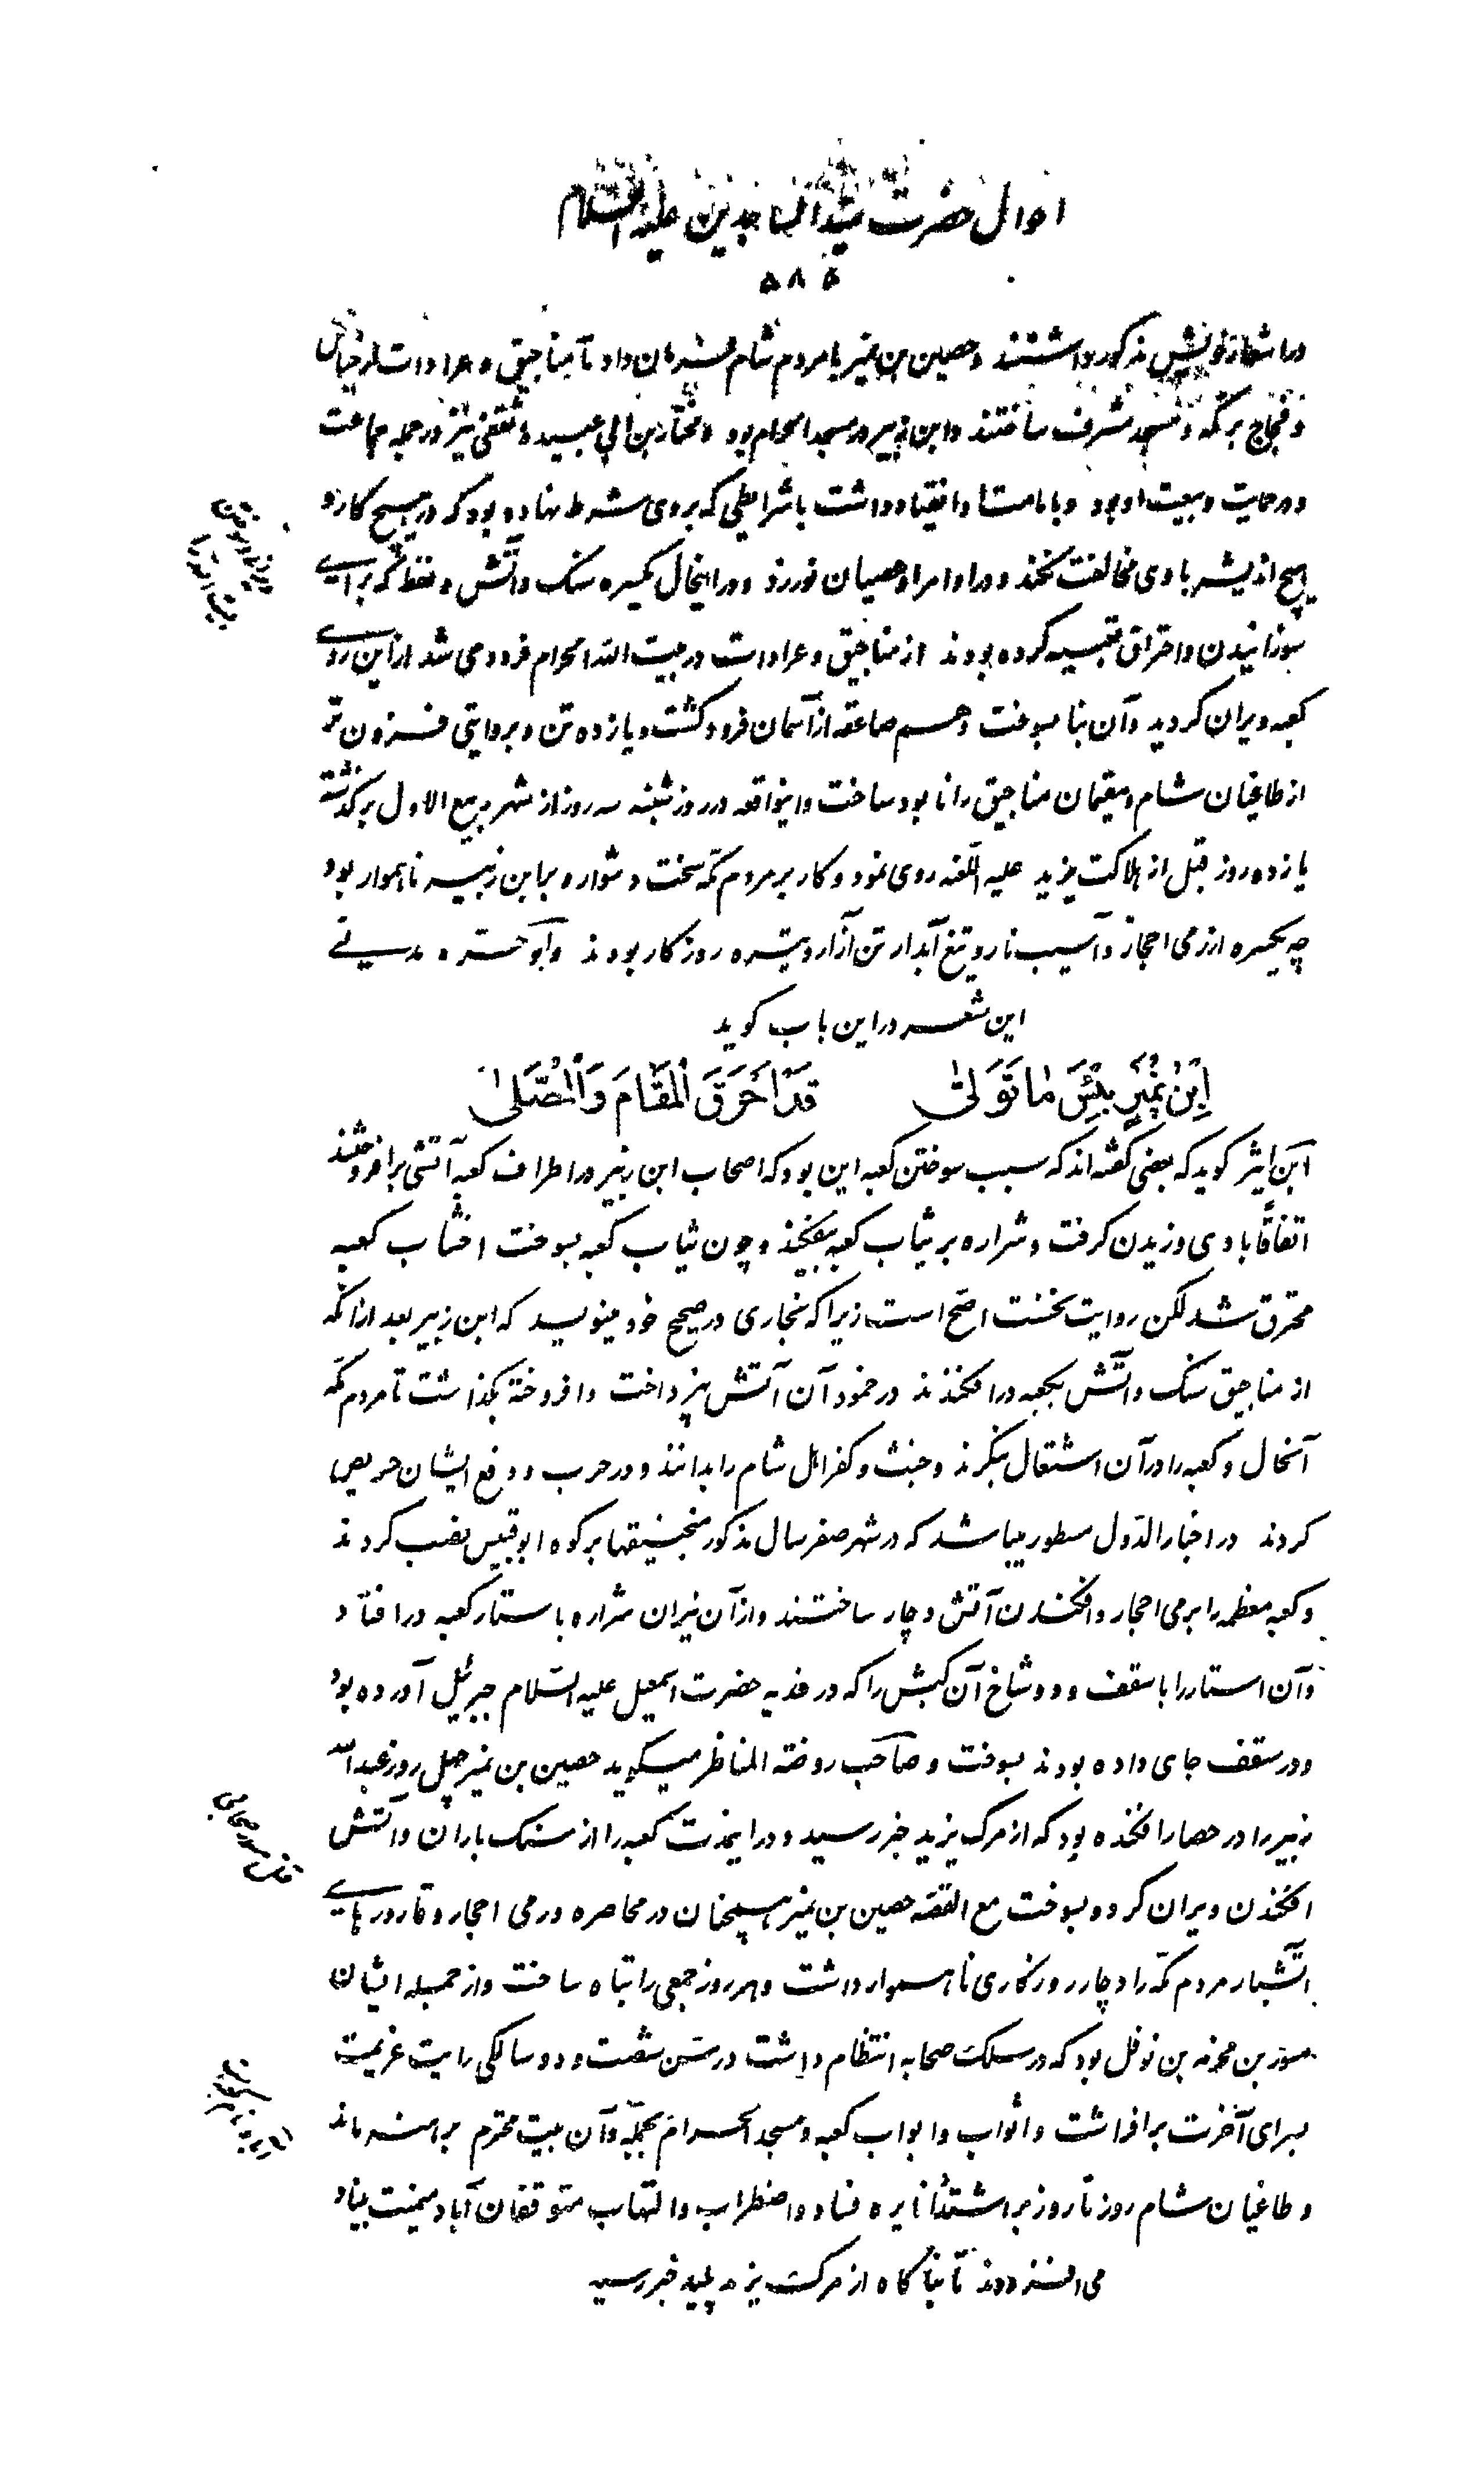 احوال حضرت سید الساجدین علیه السلام
۵۸۵
در اشعار خویش مذکور داشتند و حصین بن نمیر با مردم شام فرمان داد تا مناجیق و عرادات بر جبال
و فجاج برمکه و مسجد مشرف ساختند و ابن زبیر در مسجد الحرام بود و مختار بن ابی عبیده ثقفی نیز در جمله جماعت
و در حمایت و بیعت او بود و با مامتش انقیاد داشت با شرایطی که بروی شرط نهاده بود که در هیچ کار و
هیچ اندیشه با وی مخالفت نکند و در اوامر او عصیان نورزد و در اینحال یکسره سنک و آتش و نفط که برای
سوزانیدن و احراق تعبیه کرده بودند از مناجیق و عرادات در بیت الله الحرام فرود می شد از این روی
کعبه ویران کردید و آن بنا بسوخت و هم صاعقه از آسمان فرود کشت و یازده تن و بروایتی فزون تر
از طاغیان شام و مقیمان مناجیق را نابود ساخت و اینواقعه در روز شنبه سه روز از شهر ربیع الاول برکذشته
یازده روز قبل از هلاکت یزید علیه اللعنه روی نمود و کار بر مردم مکه سخت دشوار و بر ابن زبیر ناهموار بود
چه یکسره از رمی احجار و آسیب نار و تیغ آبدار تن آزار و تیره روز کار بودند و ابو حره مدینی
این شعر در این باب کوید
اِبْنُ نُمَیْرٍ بِئْسَ مٰا تَوَلّیٰ قَدْ اَحْرَقَ الْمَقٰامَ وَالْمُصَلّیٰ
ابن اثیر کوید که بعضی کفته اند که سبب سوختن کعبه این بود که اصحاب ابن زبیر در اطراف کعبه آتشی برافروختند
اتفاقاً بادی وزیدن کرفت و شراره بر ثیاب کعبه بیفکند و چون ثیاب کعبه بسوخت اخشاب کعبه
محترق شد لکن روایت نخست اصح است زیرا که بخاری در صحیح خود مینویسد که ابن زبیر بعد از آنکه
از مناجیق سنک و آتش بکعبه در افکندند در خمود آن آتش نپرداخت و افروخته بکذاشت تا مردم مکه
آنحال و کعبه را در آن اشتعال بنکرند و خبث و کفر اهل شام را بدانند و در حرب و دفع ایشان حریص
کردند در اخبار الدول مسطور میباشد که در شهر صفر سال مذکور منجنیقها بر کوه ابوقبیس نصب کردند
و کعبه معظمه را برمی احجار و افکندن آتش دچار ساختند و از آن نیران شراره باستار کعبه در افتاد
و آن استار را با سقف و دو شاخ آن کبش را که در فدیه حضرت اسمعیل علیه السلام جبرئیل آورده بود
و در سقف جای داده بودند بسوخت و صاحب روضة المناظر میکوید حصین بن نمیر چهل روز عبدالله
زبیر را در حصار افکنده بود که از مرک یزید خبر رسید و در اینمدت کعبه را از سنک باران و آتش
افکندن ویران کرد و بسوخت مع القصه حصین بن نمیر همچنان در محاصره و رمی احجار و قارورهای
آتشبار مردم مکه را دچار روزکاری ناهموار داشت و هر روز جمعی را تباه ساخت و از جمله ایشان
مسور بن مخرمه بن نوفل بود که در سلک صحابه انتظام داشت در سن شصت و دو سالکی رایت عزیمت
بسرای آخرت برافراشت و اثواب و ابواب کعبه و مسجد الحرام بجمله و آن بیت محترم برهنه ماند
و طاغیان شام روز تا روز بر اشتداد نایره فساد و اضطراب و التهاب متوقفان آباد میمنت بنیاد
می افزودند تا بناکاه از مرک یزید پلید خبر رسید